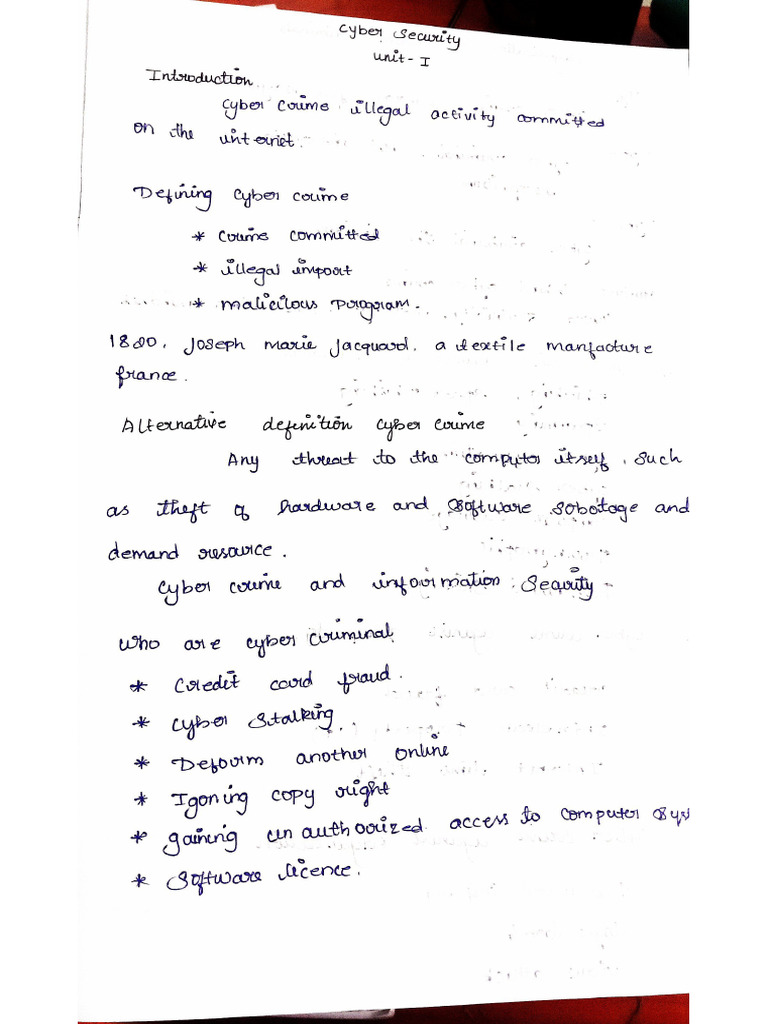 Cyber Security
Unit - I
Introduction
Cyber Crime illegal activity committed
on the internet.
Defining Cyber Crime
* Crime committed
* illegal import
* malicilous program.
1820, Joseph marie Jacquard. a textile manfacture
france.
Alternative definition cyber crime
Any threat to the computer itself. Such
as theft of hardware and software sobotoge and
demand resource.
Cyber crime and information Security
Who are cyber criminal
* Credit card fraud.
* Cyber Stalking
* Deform another online
* Igoning copy right
* gaining un authorized access to computer sys
* Software licence.